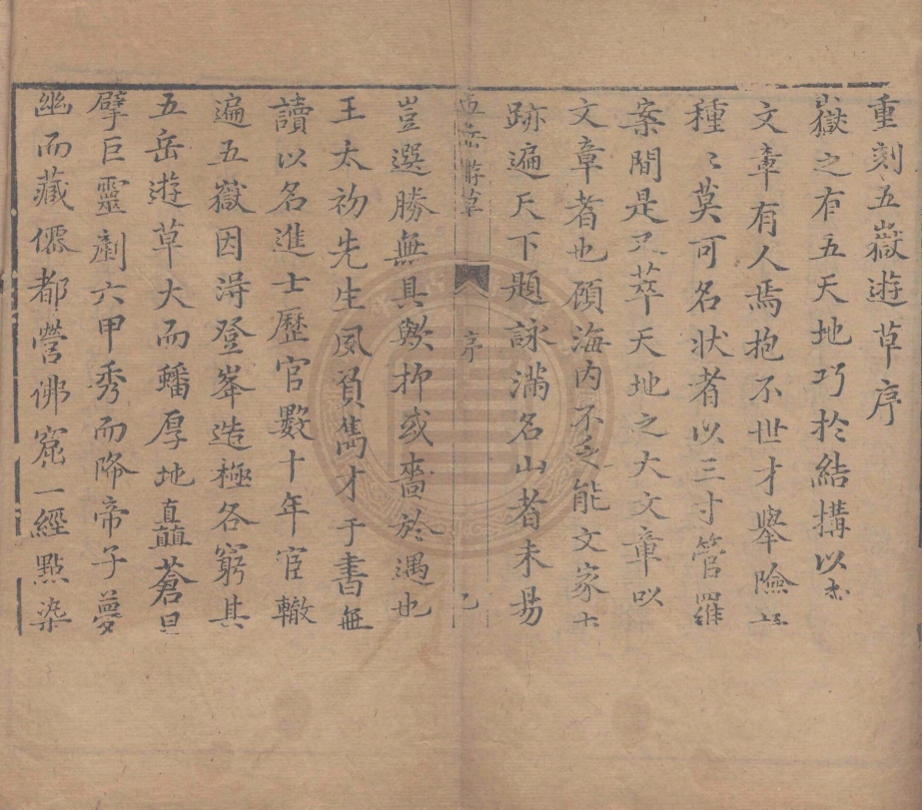 重刻五嶽遊草序
嶽之有五天地巧於結搆以
文章有人焉抱不世才舉險
種〻莫可名狀者以三寸管羅
案間是又萃天地之大文章以
文章者也顧海內不乏能文家
跡遍天下題詠滿名山者未易
五岳游草 序
豈選勝無具歟抑或嗇於遇也
王太初先生夙負雋才于書無
讀以名進士歷官數十年宦轍
遍五嶽因淂登峯造極各窮其
五岳遊草大而蟠厚地矗蒼旻
擘巨靈劃六甲秀而降帝子夢
幽而藏僊都營佛窟一經點染